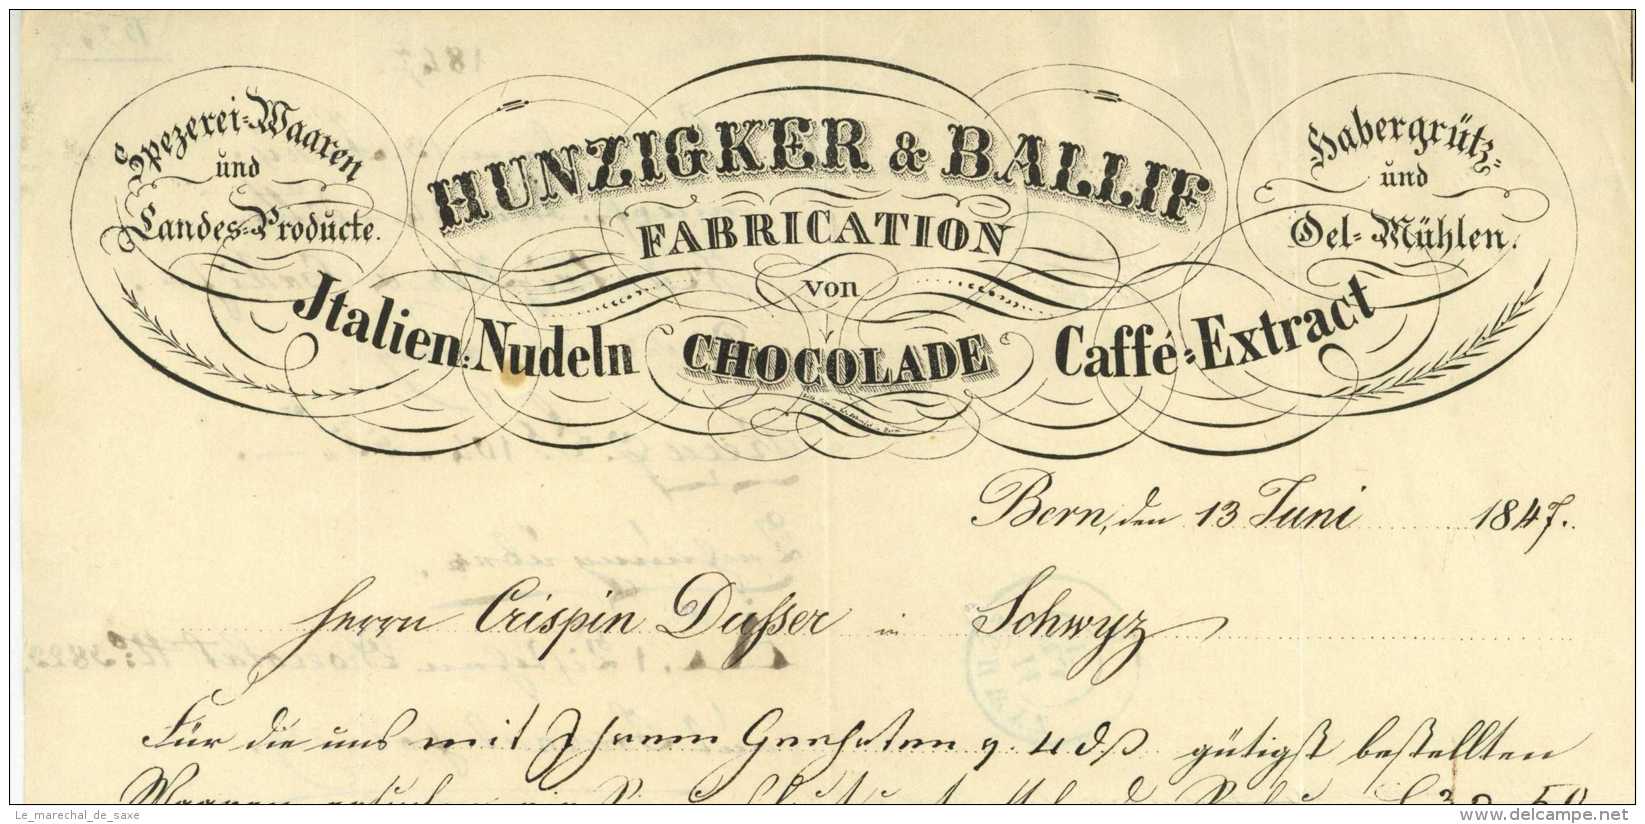 Spezerei-Waaren
und
Landes-Producte.
HUNZIGKER & BALLIF
FABRICATION
von
Jtalien: Nudeln
CHOCOLADE
Caffé-Extract
Habergrütz-
und
Oel-Mühlen.
Bern, den 13 Juni 1847.
Herrn Crispin Dusser in Schwyz
Für die uns mit Ihrem Geehrten v. 4 ds gütigst bestellten
Waaren
Le_marechal_de_saxe
www.delcampe.net